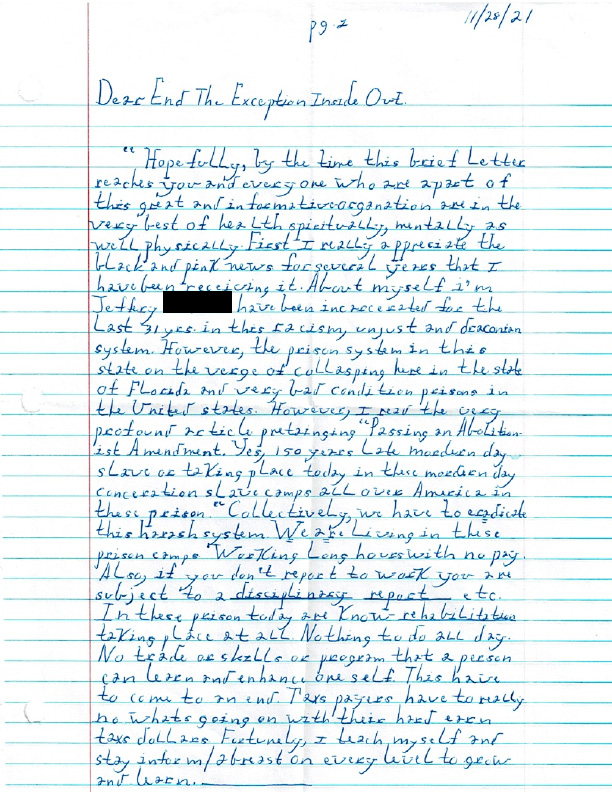 pg. 2
11/28/21
Dear End The Exception Inside Out.
"Hopefully, by the time this brief Letter
reaches you and everyone who are apart of
this great and informative organation are in the
very best of health spiritually, mentally as
well physically. First I really appreciate the
black and pink news for several years that I
have been receiving it. About myself i'm
Jeffery have been increcerated for the
Last 31 yrs. in this racism, unjust and draconian
system. However, the prison system in this
state on the verge of collasping here in the state
of Florida and very bad condition prisons in
the United states. However, I read the very
profound article pretainging "Passing an Abolition-
ist Amendment. Yes, 150 years Late mordern day
slave or taking place today in these mordern day
conceration slave camps all over America in
these prison." Collectively, we have to eradicate
this harash system. We are Living in these
prison camps "Working Long hours with no pay.
Also, if you don't report to work you are
subject to a disciplinary report etc.
In these prison today are Know rehabilitative
taking place at all. Nothing to do all day.
No trade or skills or program that a person
can learn and enhance one self. This have
to come to an end. Taxs payers have to really
no whats going on with their hard earn
taxs dollars. Fortunely, I teach myself and
stay inform/abreast on every level to grow
and learn.